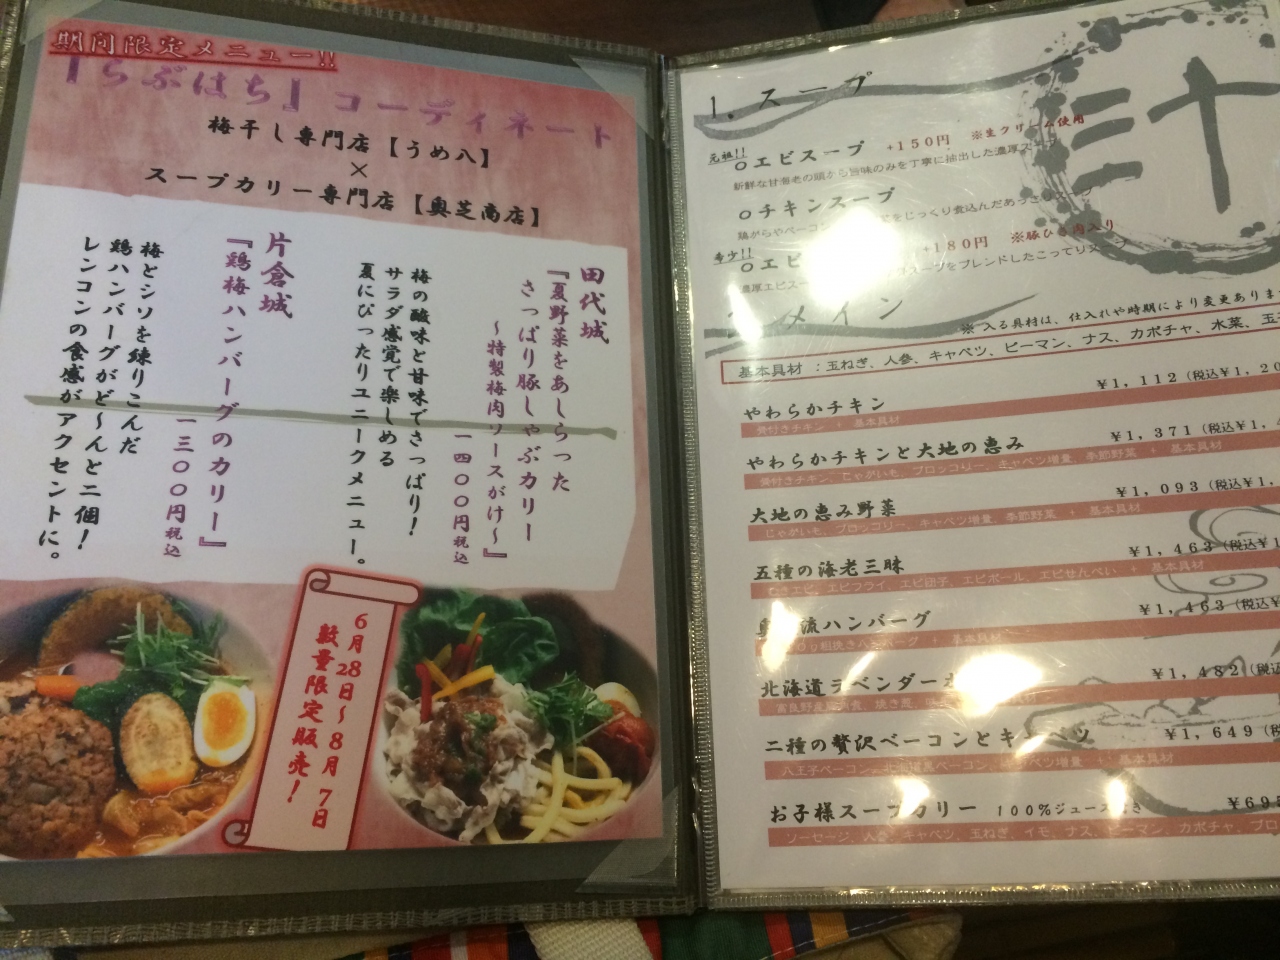 期間限定メニュー!!
『らぶはち』コーディネート
梅干し専門店【うめ八】
×
スープカリー専門店【奥芝商店】
田代城
『夏野菜をあしらった
さっぱり豚しゃぶカリー
～特製梅肉ソースがけ～』
一四〇〇円税込
梅の酸味と甘味でさっぱり！
サラダ感覚で楽しめる
夏にぴったりユニークメニュー。
片倉城
『鶏梅ハンバーグのカリー』
一三〇〇円税込
梅とシソを練りこんだ
鶏ハンバーグがど～んと二個！
レンコンの食感がアクセントに。
6月28日～8月7日
数量限定販売！
1.スープ
元祖!!
○エビスープ +150円 ※生クリーム使用
新鮮な甘海老の頭から旨味のみを丁寧に抽出した濃厚スープ
○チキンスープ
鶏がらやベーコン をじっくり煮込んだあっさり
希少!!
○エビ +180円 ※豚ひき肉入り
濃厚エビスー スープをブレンドしたこってりスープ
メイン
※入る具材は、仕入れや時期により変更ありま
基本具材：玉ねぎ、人参、キャベツ、ピーマン、ナス、カボチャ、水菜、玉
やわらかチキン ¥1,112(税込¥1,20
骨付きチキン + 基本具材
やわらかチキンと大地の恵み ¥1,371(税込¥1,4
骨付きチキン、じゃがいも、ブロッコリー、キャベツ増量、季節野菜 + 基本具材
大地の恵み野菜 ¥1,093(税込¥1,
じゃがいも、ブロッコリー、キャベツ増量、季節野菜 + 基本具材
五種の海老三昧 ¥1,463(税込¥1
エビ、エビフライ、エビ団子、エビボール、エビせんべい + 基本具材
流ハンバーグ ¥1,463(税込¥
粗挽きハンバーグ + 基本具材
北海道ラベンダー ¥1,482(税
富良野産
二種の贅沢ベーコンとキャベツ ¥1,649(税
八王子ベーコン、 黒ベーコン、キャベツ増量 + 基本具材
お子様スープカリー 100%ジュース付き ¥69
ソーセージ、人参、キャベツ、玉ねぎ、イモ、ナス、ピーマン、カボチャ、ブロ